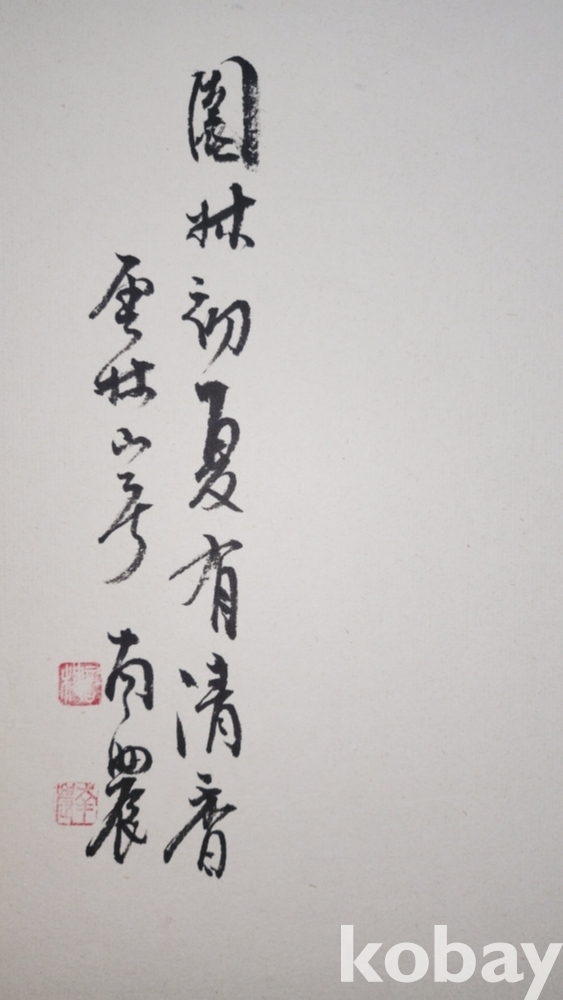 園林初夏有清香
雲林山房 南農
kobay